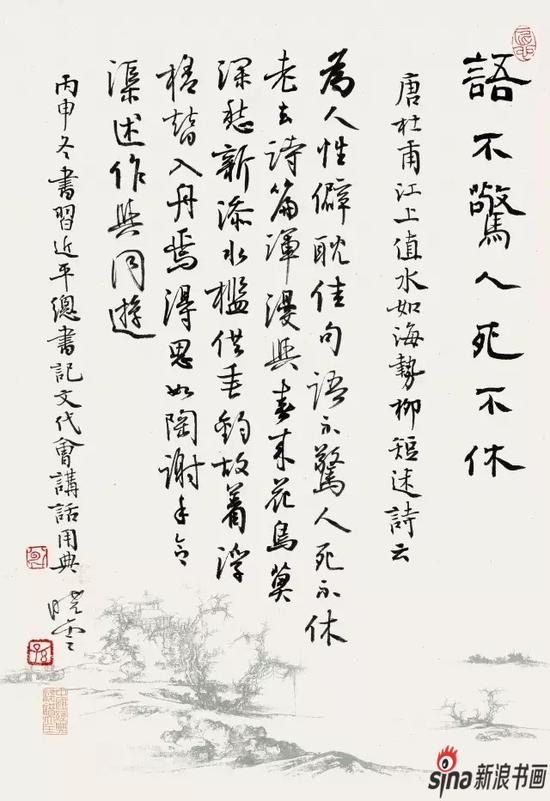 語不驚人死不休
唐杜甫江上值水如海勢柳短述詩云
為人性僻耽佳句語不驚人死不休
老去詩篇渾漫與春來花鳥莫
深愁新添水檻供垂釣故着浮
槎替入舟焉得思如陶謝手令
渠述作與同遊
丙申冬書習近平總書記文代會講話用典 曉雲
sina新浪书画